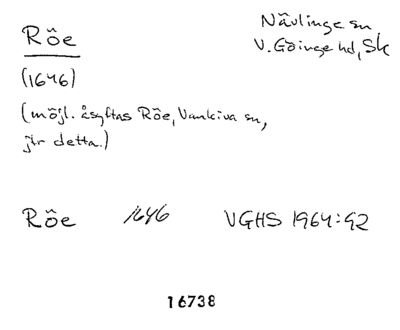 Röe
Nävlinge sn
V. Göinge hd, Sk
(1646)
(möjl. åsyftas Röe, Vankiva sn,
jfr detta.)
Röe 1646 VGHS 1964:92
16738